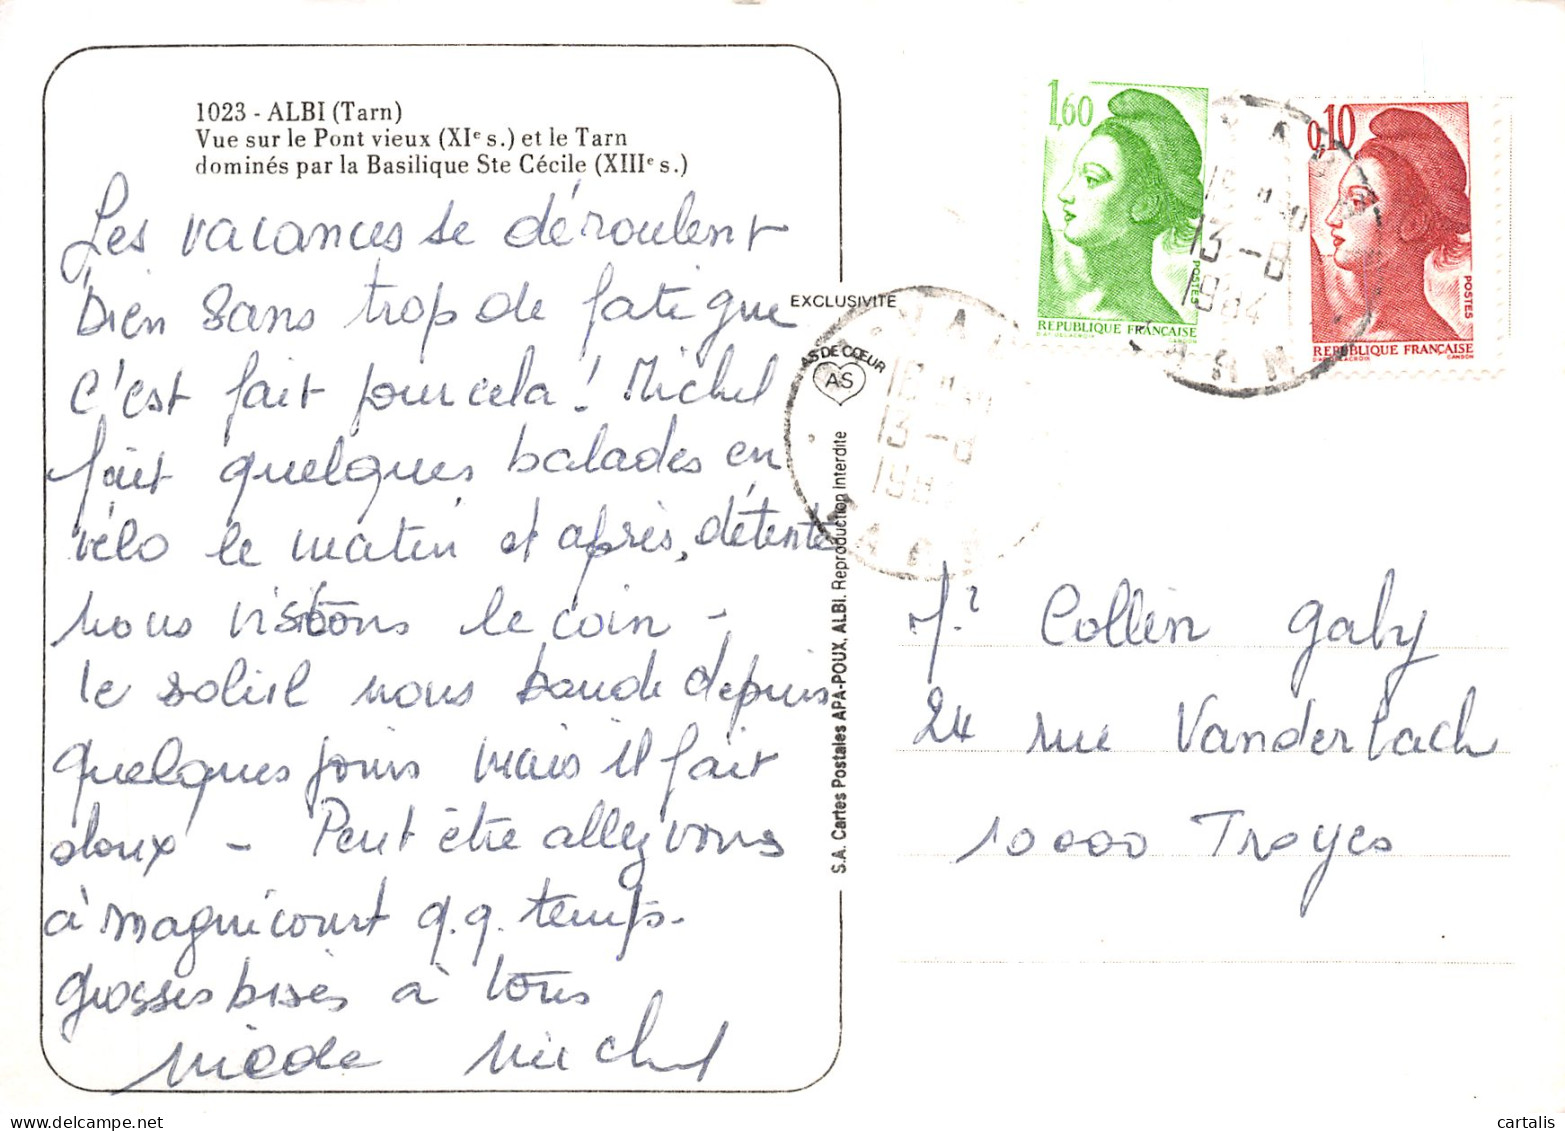 1023 - ALBI (Tarn)
Vue sur le Pont vieux (XIe s.) et le Tarn
dominés par la Basilique Ste Cécile (XIIIe s.)
Les vacances se déroulent
bien sans trop de fatigue
c'est fait pour cela ! Michel
fait quelques balades en
vélo le matin et après, détente
nous visitons le coin -
le soleil nous boude depuis
quelques jours mais il fait
doux - Peut être allez vous
à Magnicourt q.q. temps.
grosses bises à tous
Michel
EXCLUSIVITE
AS DE CŒUR
AS
S.A. Cartes Postales APA-POUX, ALBI. Reproduction interdite
1,60
POSTES
REPUBLIQUE FRANÇAISE
0,10
POSTES
REPUBLIQUE FRANÇAISE
13 -8
1984
TARN
13 -8
Collin Gaby
24 rue Vanderbach
10000 Troyes
cartalis